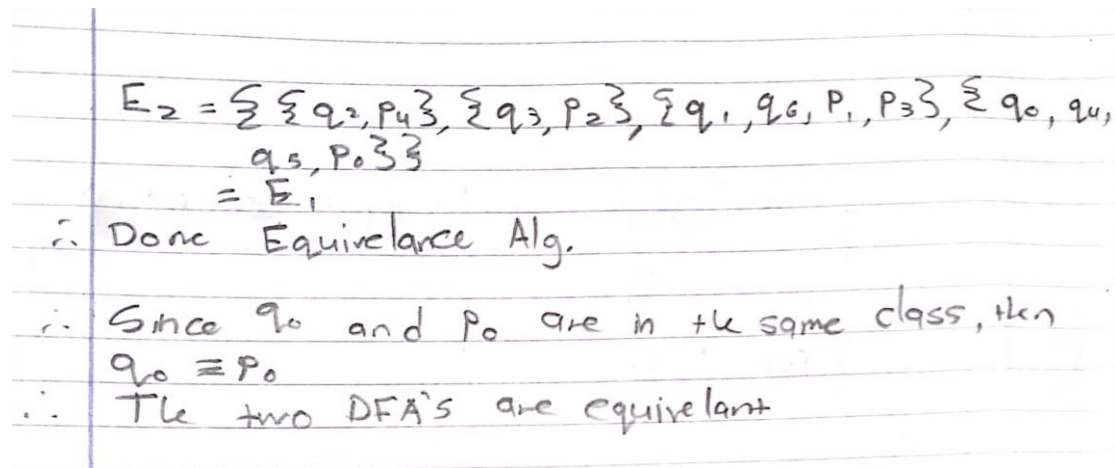 E₂ = {{q₂, p₄}, {q₃, p₂}, {q₁, q₆, p₁, p₃}, {q₀, q₄,
q₅, p₀}}
= E₁
∴ Done Equivelance Alg.
∴ Since q₀ and p₀ are in the same class, then
q₀ ≡ p₀
∴ The two DFA's are equivelant